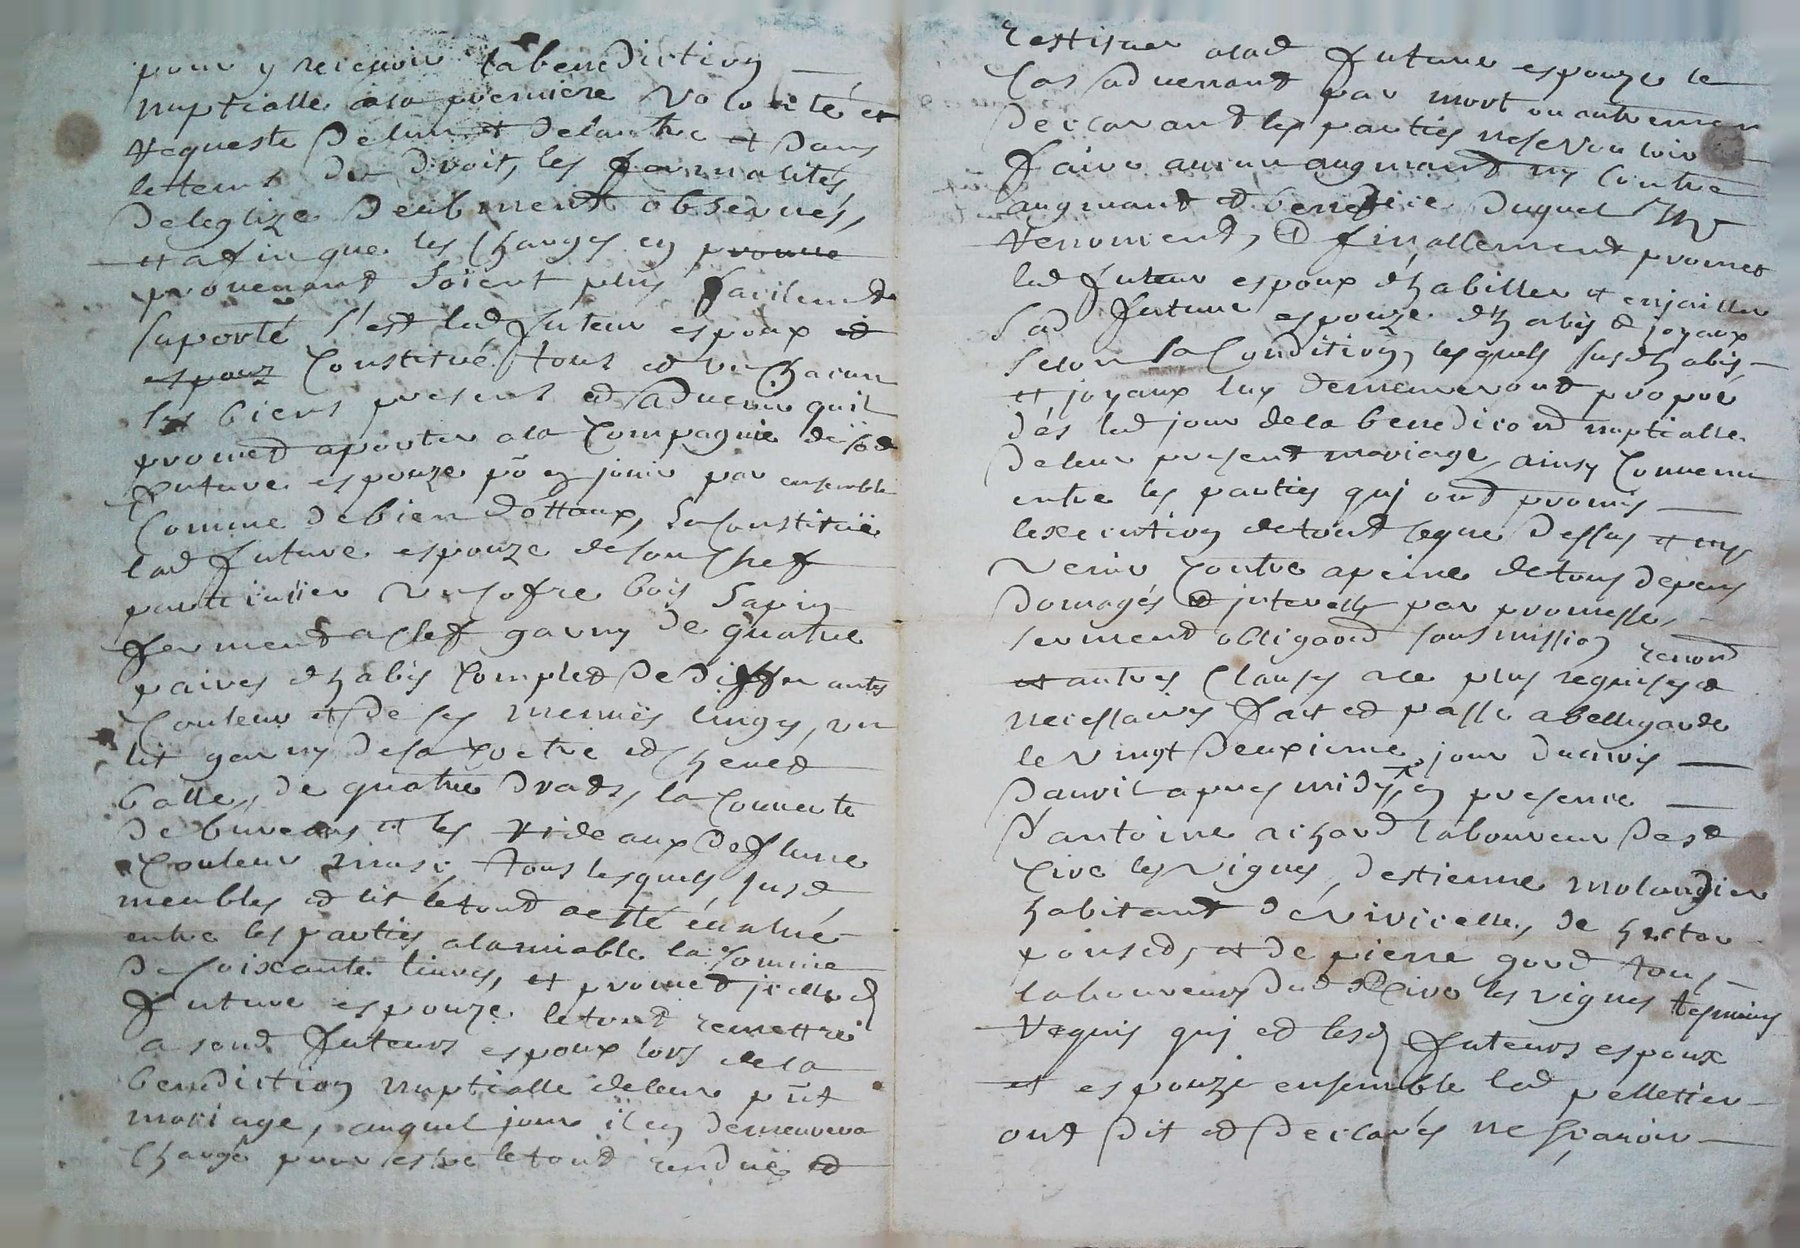 pour y recepvoir la benediction
nuptialle a la premiere volonté et
requeste de lun et de lautre et dans
le temps du droit, les formalités
de leglize deubment observés,
et afin que les charges en prouve
provenant soient plus facilemt
suporté s'est led futeur espoux et
espouz constitué tous et un chacun
ses biens presents et advenir quil
promet aporter a la compagnie de sad
future espouze pō en jouir par ensemble
comme de bien dottaux, se constituë
lad future espouze de son chef
particulier un cofre bois sapin
fermant a clef garny de quatre
paires dhabis complet de differantes
couleur et de ses menuës linges, un
lit garny de sa coetre et chevet
balle, de quatre draps, la couverte
de bureau et les rideaux de
couleur tous lesquels susd
meubles et lit le tout a esté évalué
entre les parties a lamiable la somme
de soixante livres, et promet jcelle d
future espouze le tout remettre
a sond futeurs espoux lors de la
benediction nuptialle de leur pñt
mariage, auquel jour il en demeurera
chargé pour estre le tout renduë et
restituer alad future espouze le
cas advenant par mort ou autrement
declarant les parties ne se vouloir
faire aucun augmant ny contre
augmant et benefice duquel
renoncent, finallement promet
led futeur espoux dhabiller et enjoailler
sad future espouze dhabis et joyaux
selon sa condition, lesquels susd habis
et joyaux luy demeureront propre
dés led jour de la benediction nuptialle
de leur present mariage, ainsy convenu
entre les parties quj ont promis
lexecution de tout ceque dessus et ny
venir contre a peine de tous depens
domages et jnterests par promesse,
serment obligaon soumission renon
et autres clauses a ce plus requises et
necessaires fait et passé a bellegarde
le vingt deuxieme jour du mois
davril apres midy, en presence
dantoine richard laboureur de st
cire les vignes, destienne molandier
habitant de viricelle, de hector
poinset, et de pierre gord tous
laboureurs dud st Cire les vignes tesmoins
requis quj et lesd futeurs espoux
et espouze ensemble led pelletier
ont dit et declarés ne scavoir